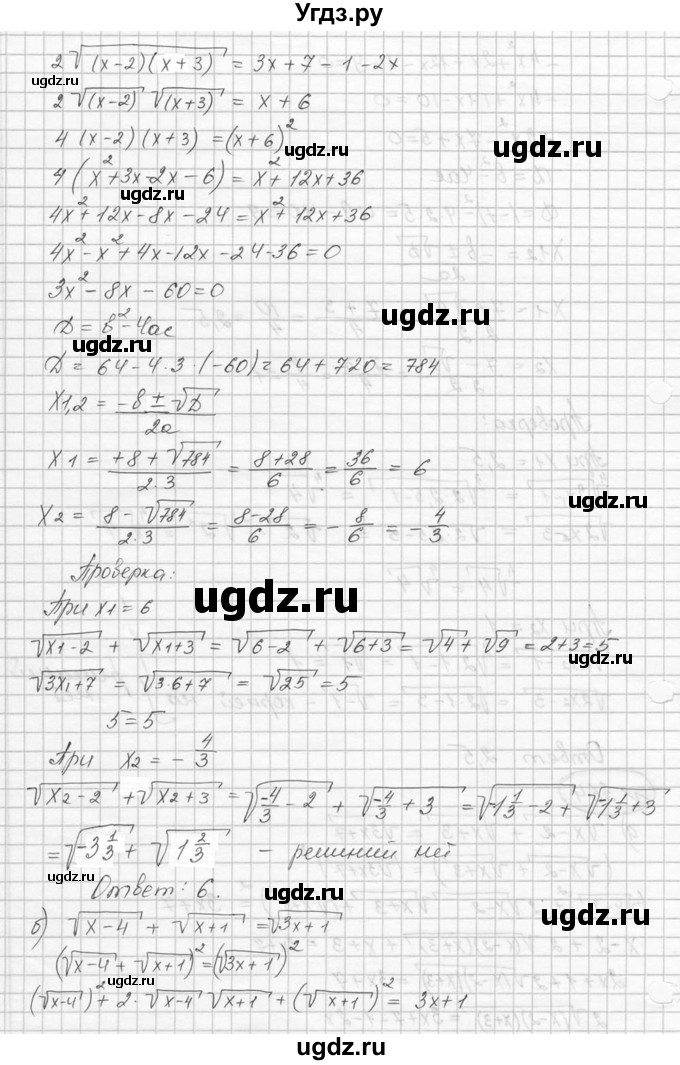 Угдз.ру
2√((x-2)(x+3)) = 3x+7-1-2x
ugdz.ru
2√(x-2) √(x+3) = x+6
4(x-2)(x+3) = (x+6)²
ugdz.ru
4(x²+3x-2x-6) = x²+12x+36
ugdz.ru
4x²+12x-8x-24 = x²+12x+36
ugdz.ru
4x²-x²+4x-12x-24-36=0
3x²-8x-60=0
ugdz.ru
D = b²-4ac
ugdz.ru
D = 64-4·3·(-60) = 64+720 = 784
x1,2 = (-8±√D)/2a
x1 = (+8+√784)/(2·3) = (8+28)/6 = 36/6 = 6
ugdz.ru
x2 = (8-√784)/(2·3) = (8-28)/6 = -8/6 = -4/3
Проверка:
ugdz.ru
При x1=6
√(x1-2) + √(x1+3) = √(6-2) + √(6+3) = √4+√9 = 2+3=5
√(3x1+7) = √(3·6+7) = √25 = 5
ugdz.ru
5=5
При x2 = -4/3
ugdz.ru
√(x2-2) + √(x2+3) = √(-4/3-2) + √(-4/3+3) = √(-1 1/3-2) + √(-1 1/3+3)
= √(-3 1/3) + √(1 2/3) - решиний нет
ugdz.ru
Ответ: 6.
ugdz.ru
б) √(x-4) + √(x+1) = √(3x+1)
(√(x-4) + √(x+1))² = (√(3x+1))²
ugdz.ru
(√(x-4))² + 2·√(x-4) √(x+1) + (√(x+1))² = 3x+1
ugdz.ru